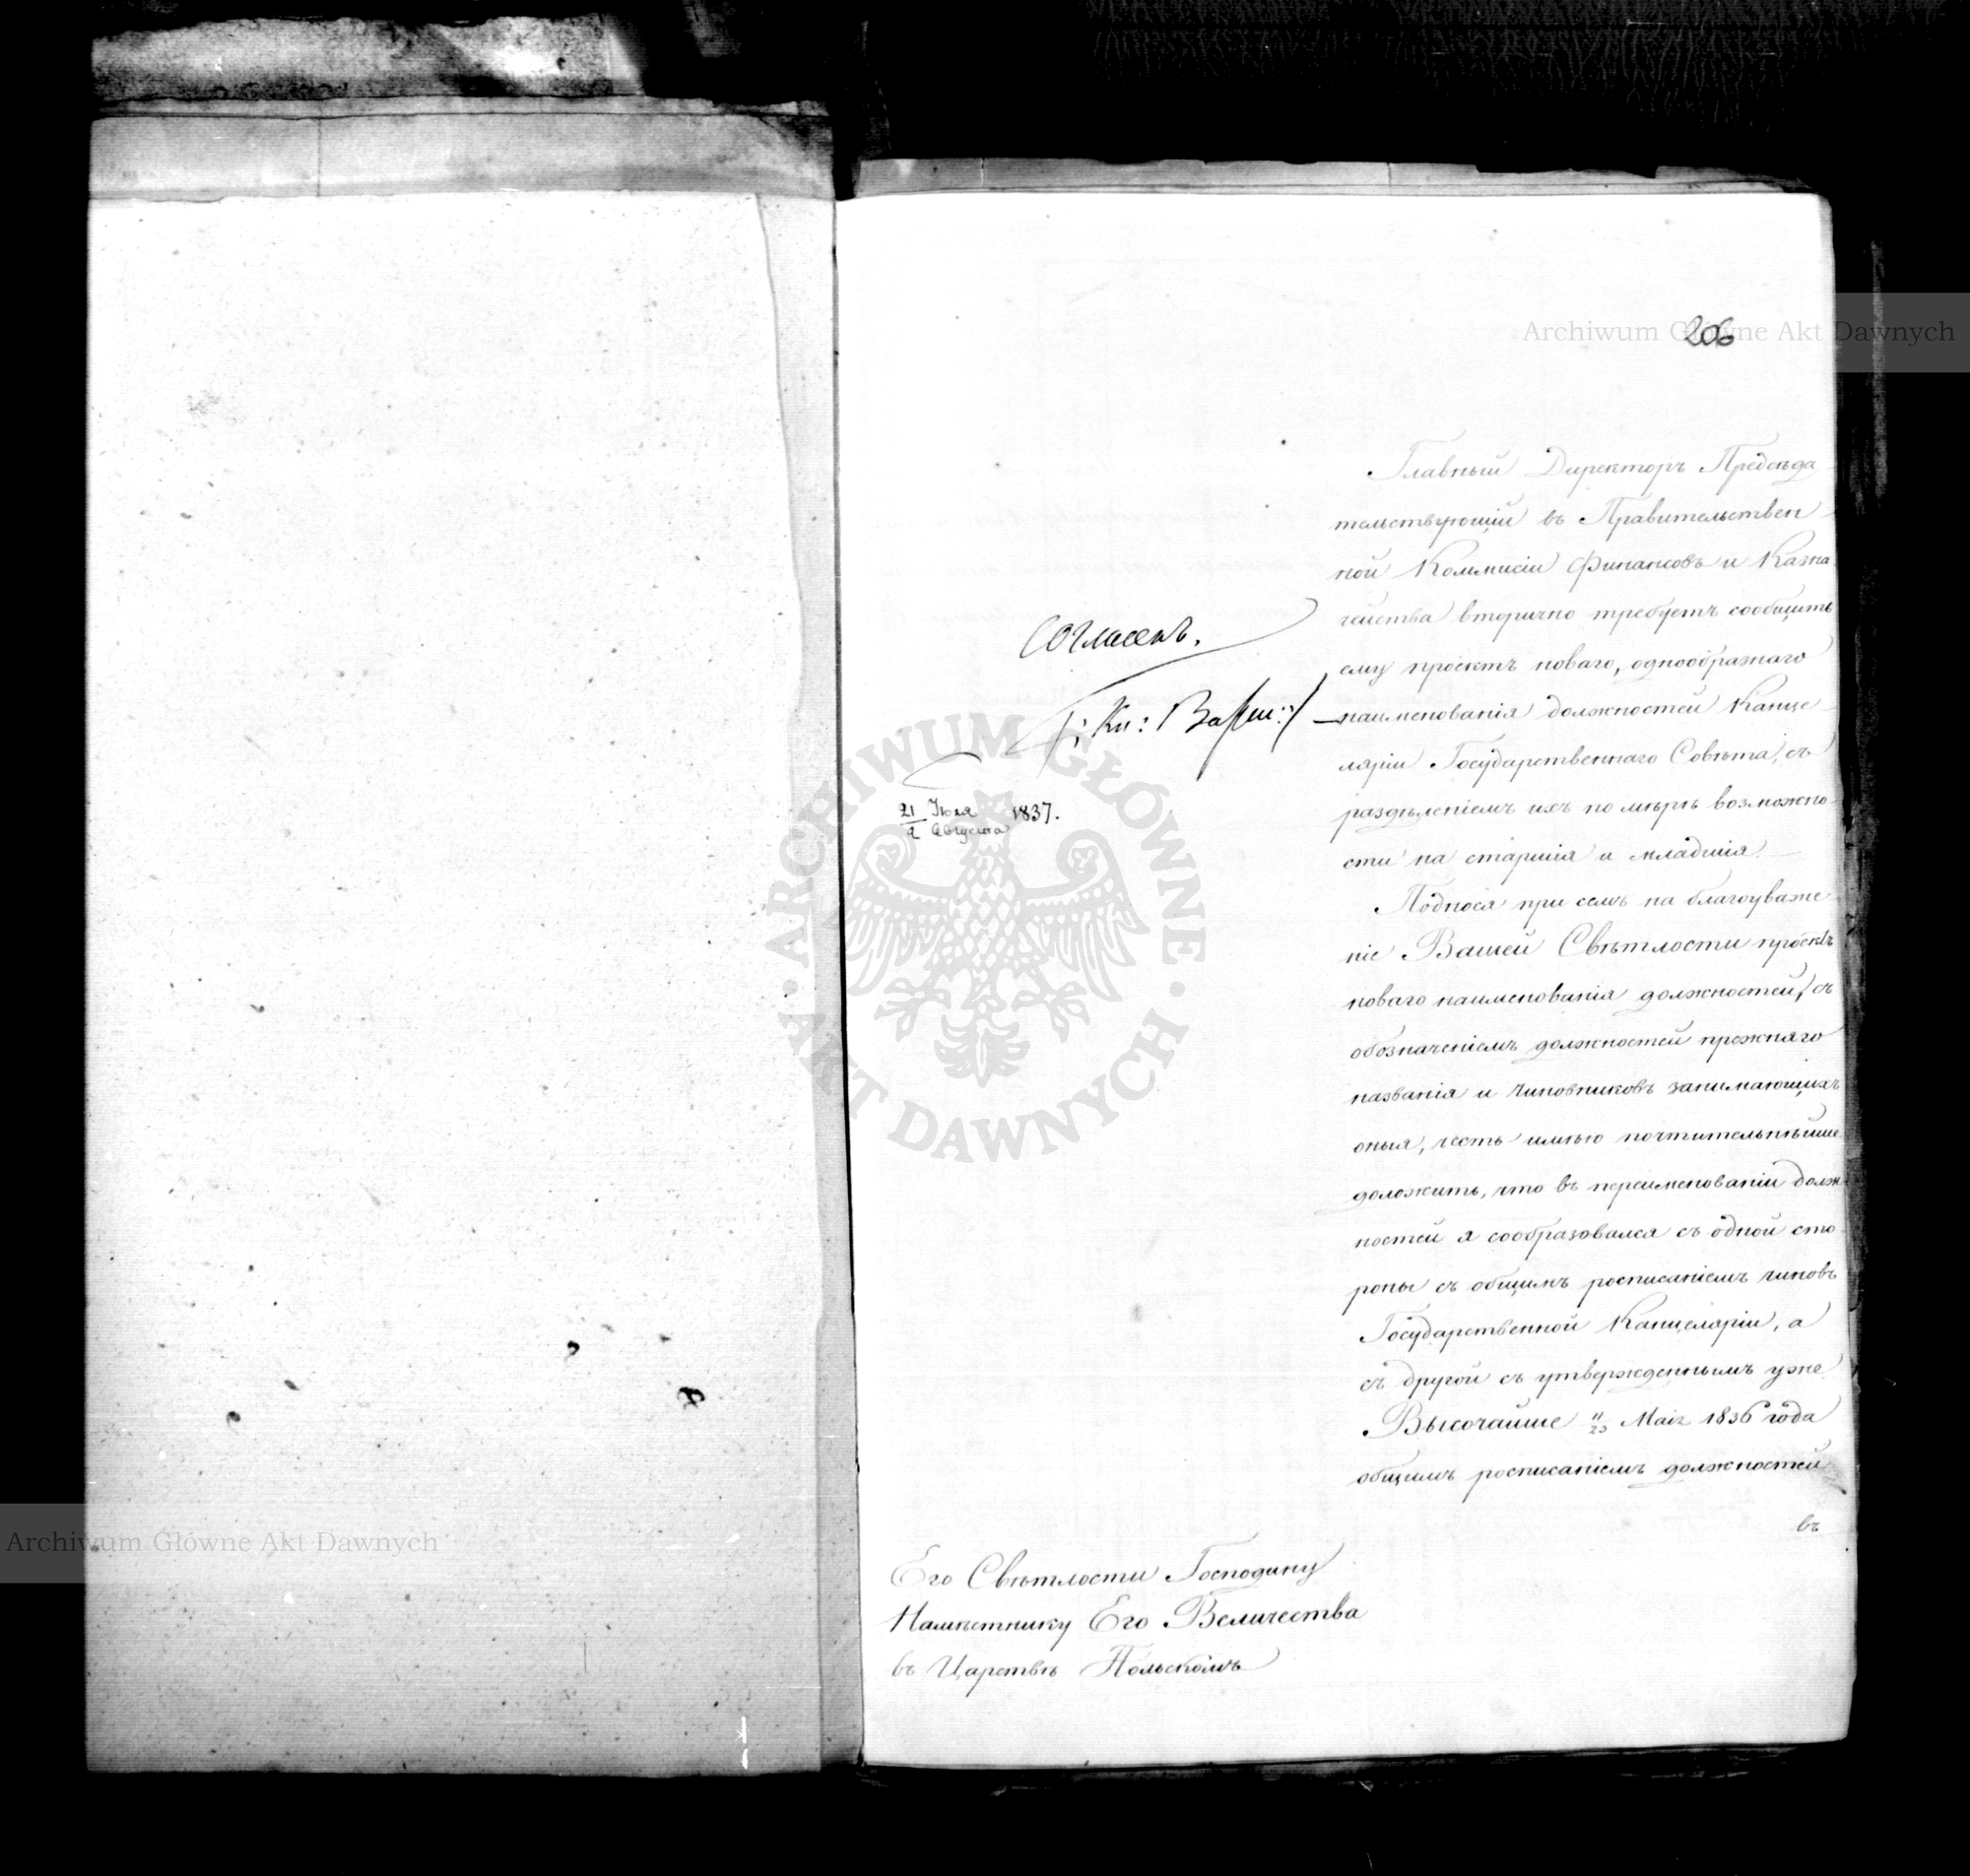 206
Главный Директоръ Предсѣда
тельствующій въ Правительствен
ной Коммисіи Финансовъ и Казна
чейства вторично требуетъ сообщить
ему проектъ новаго, однообразнаго
наименованія должностей Канце
ляріи Государственнаго Совѣта, съ
раздѣленіемъ ихъ по мѣрѣ возможно
сти на старшія и младшія.
Поднося при семъ на благоуваже
ніе Вашей Свѣтлости проектъ
новаго наименованія должностей, съ
обозначеніемъ должностей прежняго
названія и чиновниковъ занимающихъ
оныя, честь имѣю почтительнѣйше
доложить, что въ переименованіи долж
ностей я сообразовался съ одной сто
роны съ общимъ росписаніемъ чиновъ
Государственной Канцеляріи, а
съ другой съ утвержденнымъ уже
Высочайше 11/23 Маія 1836 года
общимъ росписаніемъ должностей
въ
Согласенъ.
Кн: Варш:
21 Іюля 1837.
2 Августа
Его Свѣтлости Господину
Намѣстнику Его Величества
въ Царствѣ Польскомъ
Archiwum Główne Akt Dawnych
Archiwum Główne Akt Dawnych
ARCHIWUM GŁÓWNE
AKT DAWNYCH